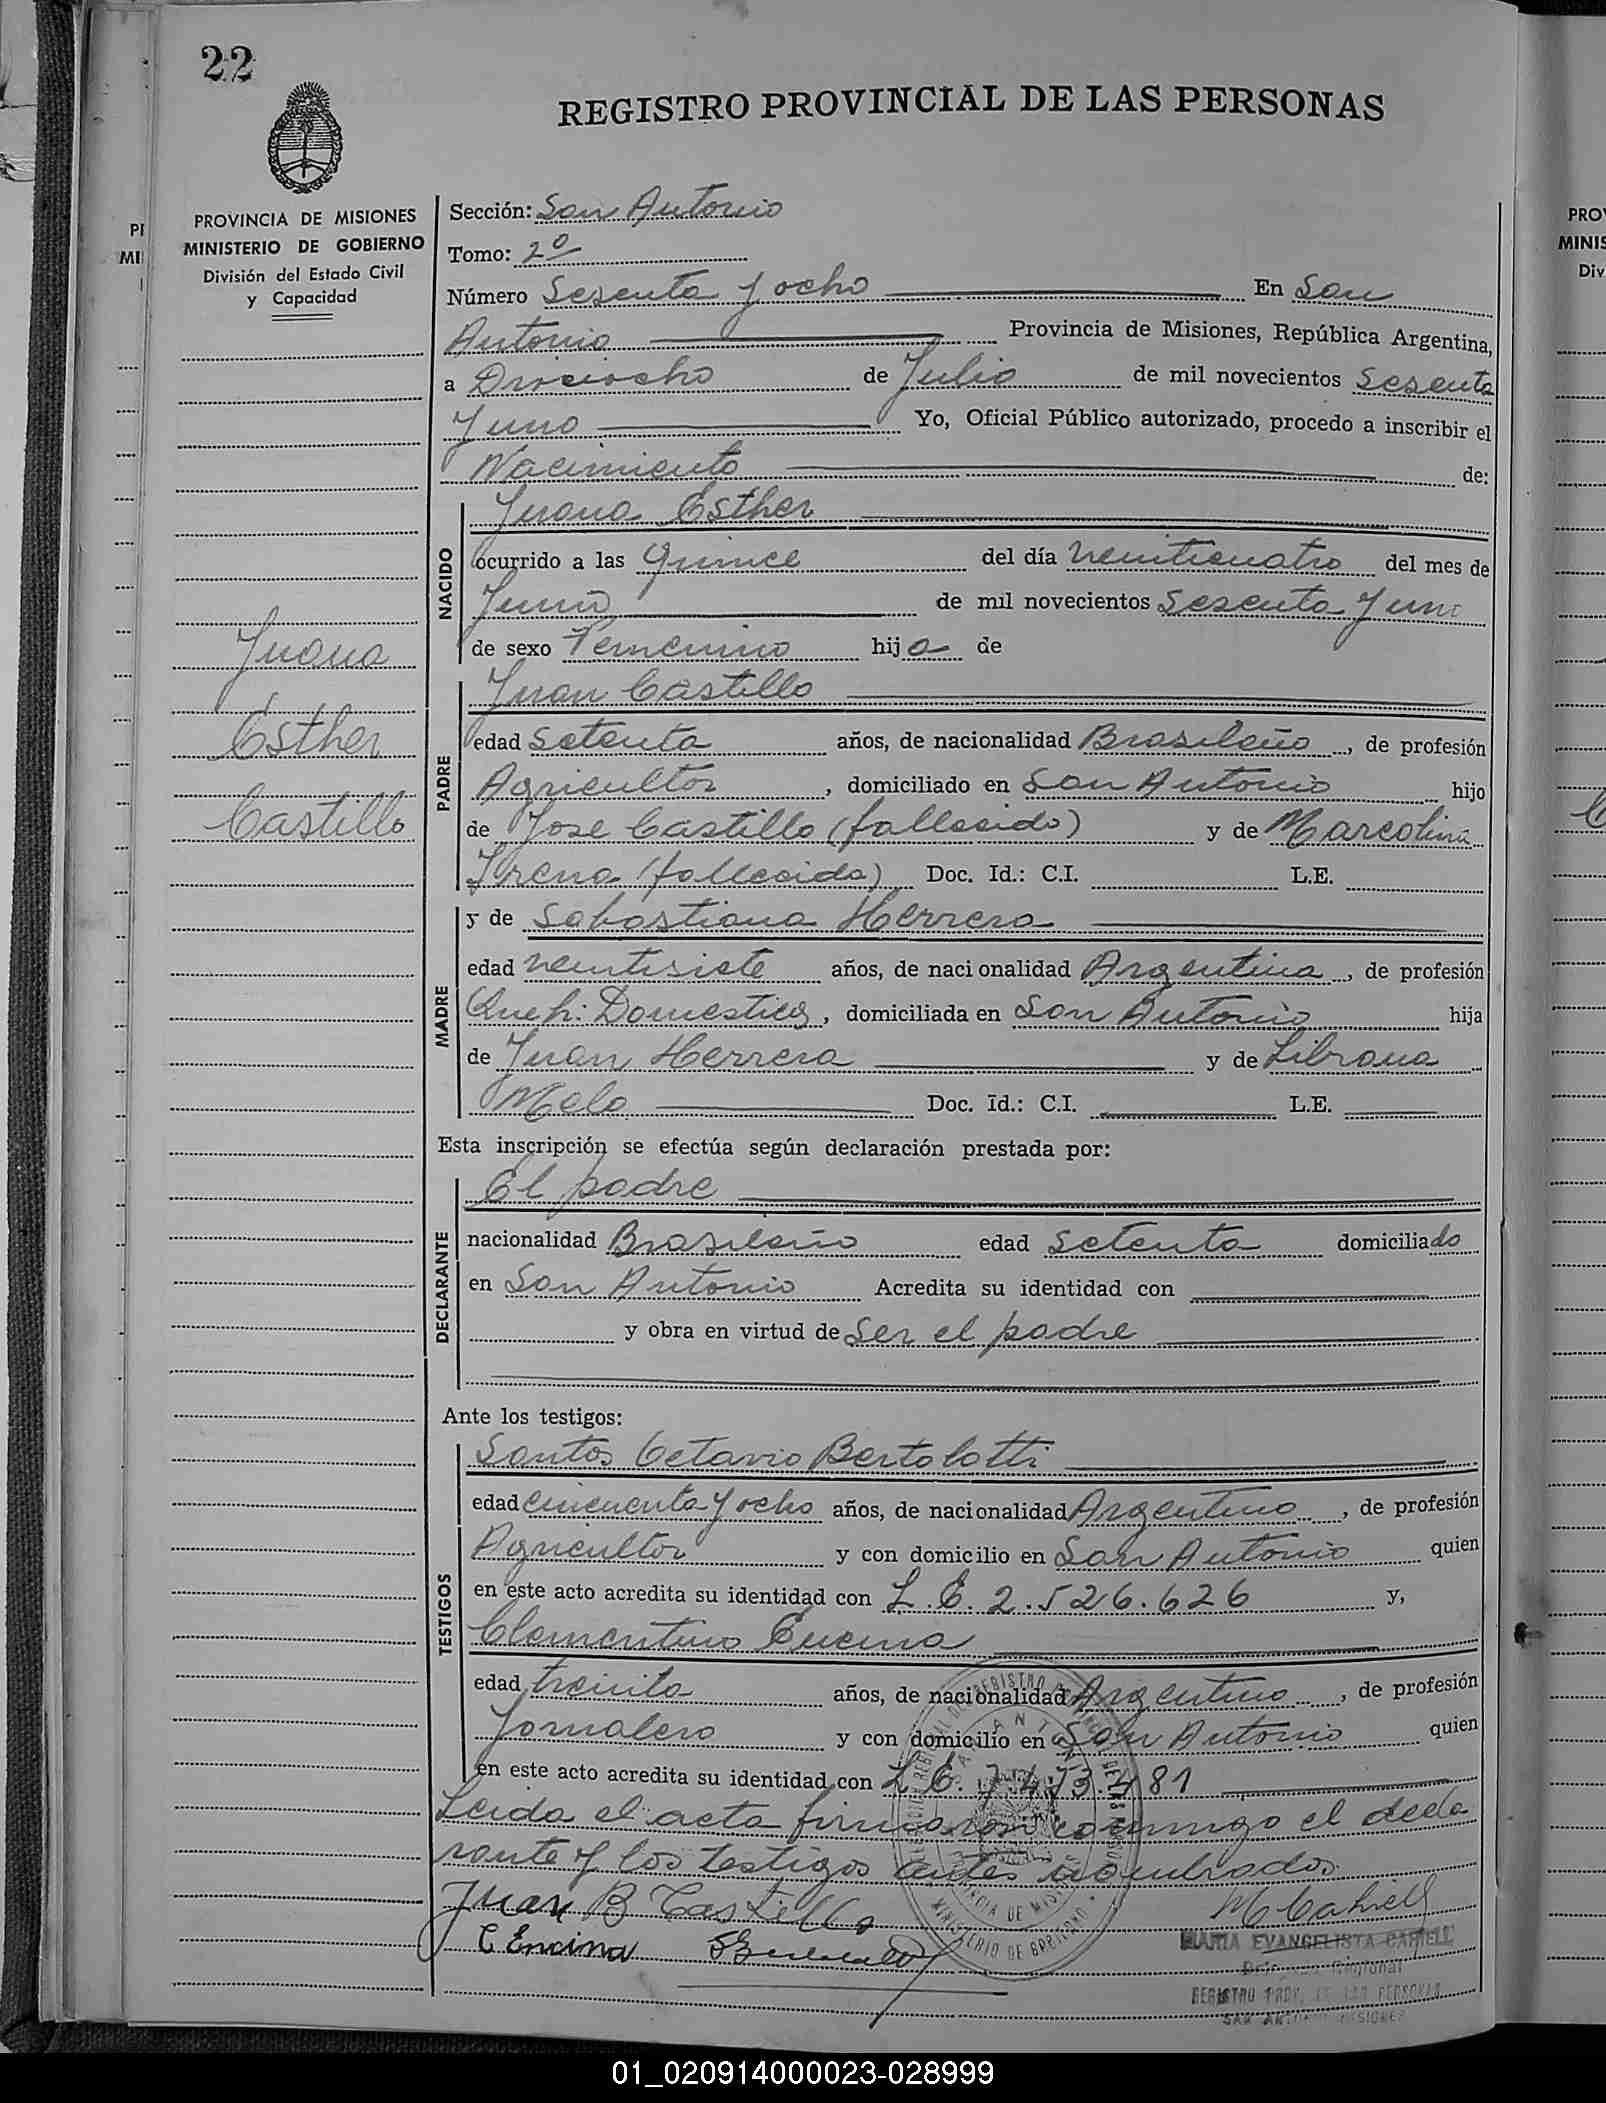 22
REGISTRO PROVINCIAL DE LAS PERSONAS
PROVINCIA DE MISIONES
MINISTERIO DE GOBIERNO
División del Estado Civil
y Capacidad
Juana
Esther
Castillo
Sección: San Antonio
Tomo: 2º
Número Sesenta y ocho En San
Antonio Provincia de Misiones, República Argentina,
a Dieciocho de Julio de mil novecientos Sesenta
y uno Yo, Oficial Público autorizado, procedo a inscribir el
Nacimiento de:
NACIDO
Juana Esther
ocurrido a las quince del día veinticuatro del mes de
Junio de mil novecientos Sesenta y uno
de sexo Femenino hija de
PADRE
Juan Castillo
edad setenta años, de nacionalidad Brasileño, de profesión
Agricultor, domiciliado en San Antonio hijo
de Jose Castillo (fallecido) y de Marcolina
Irena (fallecida) Doc. Id.: C.I. L.E.
MADRE
y de Sebastiana Herrera
edad veintisiete años, de nacionalidad Argentina, de profesión
Queh. Domesticos, domiciliada en San Antonio hija
de Juan Herrera y de Librana
Melo Doc. Id.: C.I. L.E.
Esta inscripción se efectúa según declaración prestada por:
DECLARANTE
El padre
nacionalidad Brasileño edad setenta domiciliado
en San Antonio Acredita su identidad con
y obra en virtud de Ser el padre
Ante los testigos:
TESTIGOS
Santos Octavio Bertolotti
edad cincuenta y ocho años, de nacionalidad Argentino, de profesión
Agricultor y con domicilio en San Antonio quien
en este acto acredita su identidad con L.E. 2.526.626 y,
Clementino Encina
edad treinta años, de nacionalidad Argentino, de profesión
Jornalero y con domicilio en San Antonio quien
en este acto acredita su identidad con L.E. 7.473.481
Leida el acta firmaron conmigo el decla
rante y los testigos antes nombrados.
Juan B Castillo
C Encina
MARIA EVANGELISTA CARIELL
REGISTRO PROV. DE LAS PERSONAS
SAN ANTONIO MISIONES
01_020914000023-028999